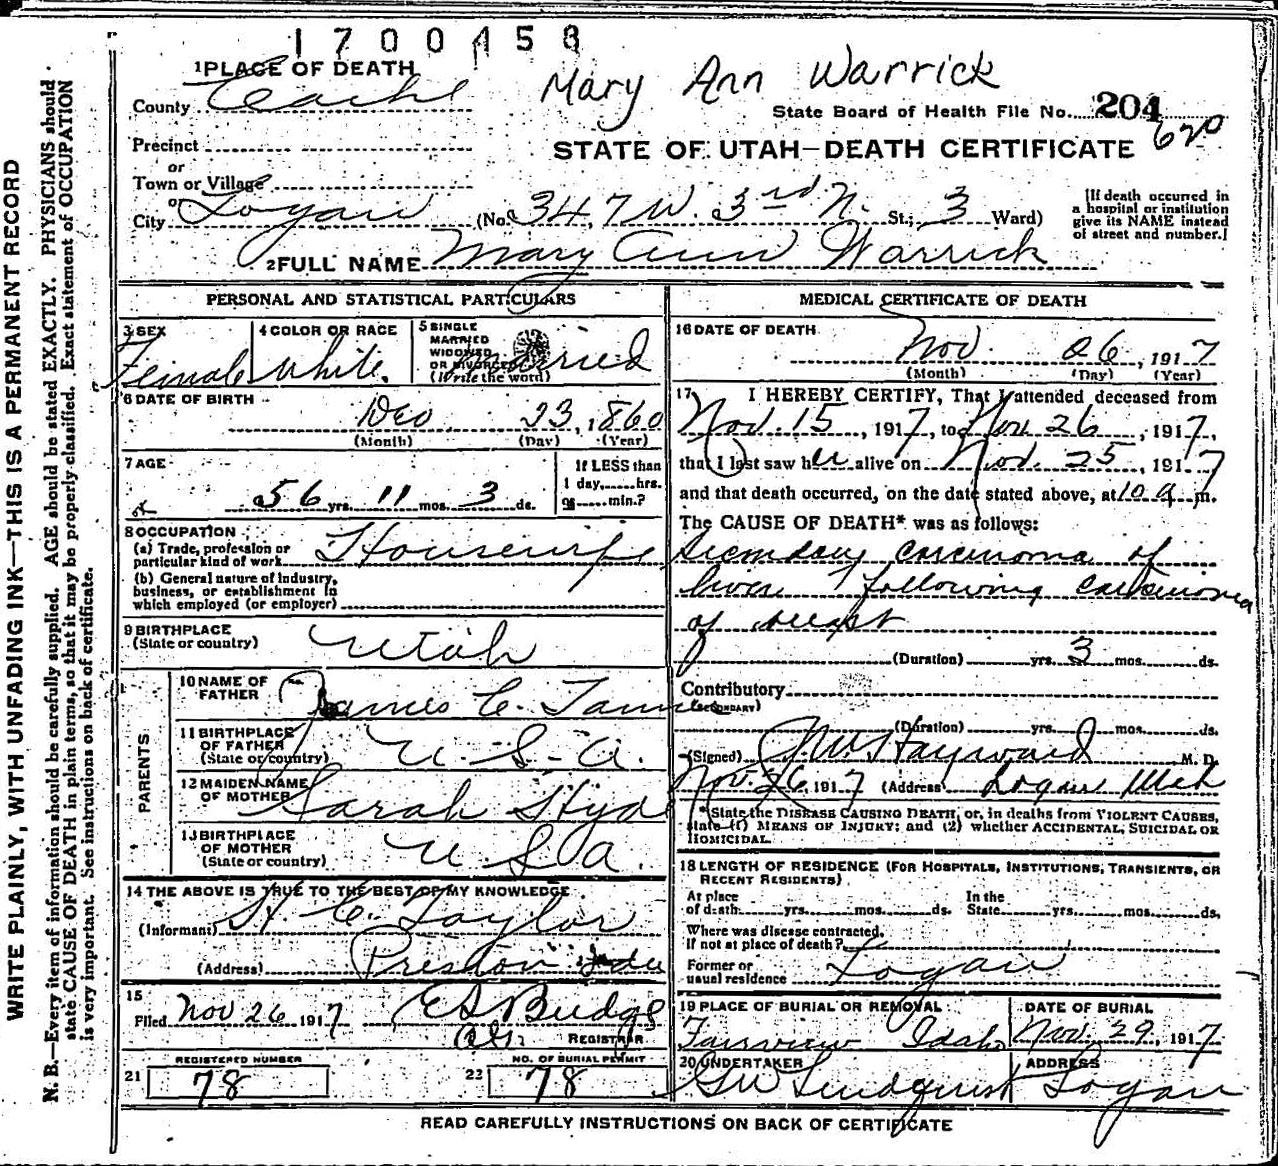 1700458
1 PLACE OF DEATH
Mary Ann Warrick
County Cache
State Board of Health File No. 204
620
Precinct
or
STATE OF UTAH—DEATH CERTIFICATE
Town or Village
or
City Logan (No. 347 W. 3rd N. St.; 3 Ward)
[If death occurred in a hospital or institution give its NAME instead of street and number.]
2 FULL NAME Mary Ann Warrick
PERSONAL AND STATISTICAL PARTICULARS
3 SEX Female
4 COLOR OR RACE White.
5 SINGLE MARRIED WIDOWED OR DIVORCED (Write the word) Married
6 DATE OF BIRTH
Dec 23, 1860
(Month) (Day) (Year)
7 AGE
56 yrs. 11 mos. 3 ds.
If LESS than
1 day, hrs.
or min.?
8 OCCUPATION
(a) Trade, profession or
particular kind of work Housewife
(b) General nature of Industry,
business, or establishment in
which employed (or employer)
9 BIRTHPLACE
(State or country) Utah
PARENTS
10 NAME OF
FATHER James C.
11 BIRTHPLACE
OF FATHER
(State or country) U.S.A.
12 MAIDEN NAME
OF MOTHER Sarah Hyde
13 BIRTHPLACE
OF MOTHER
(State or country) U S A.
14 THE ABOVE IS TRUE TO THE BEST OF MY KNOWLEDGE
(Informant) H C. Taylor
(Address) Preston Ida
15
Filed Nov 26 1917 E S Budge
REGISTRAR
REGISTERED NUMBER
21 78
NO. OF BURIAL PERMIT
22 78
MEDICAL CERTIFICATE OF DEATH
16 DATE OF DEATH
Nov. 26, 1917
(Month) (Day) (Year)
17 I HEREBY CERTIFY, That I attended deceased from
Nov. 15, 1917, to Nov 26, 1917,
that I last saw her alive on Nov. 25, 1917
and that death occurred, on the date stated above, at 10 a. m.
The CAUSE OF DEATH* was as follows:
Secondary carcinoma of
liver following carcinoma
of breast
(Duration) yrs. 3 mos. ds.
Contributory
(SECONDARY)
(Duration) yrs. mos. ds.
(Signed) Hayward M. D.
Nov. 26, 1917 (Address) Logan Utah
*State the DISEASE CAUSING DEATH, or, in deaths from VIOLENT CAUSES,
state (1) MEANS OF INJURY; and (2) whether ACCIDENTAL, SUICIDAL OR
HOMICIDAL.
18 LENGTH OF RESIDENCE (FOR HOSPITALS, INSTITUTIONS, TRANSIENTS, OR
RECENT RESIDENTS)
At place In the
of death yrs. mos. ds. State yrs. mos. ds.
Where was disease contracted,
If not at place of death?
Former or
usual residence Logan
19 PLACE OF BURIAL OR REMOVAL
Fairview Idaho
DATE OF BURIAL
Nov. 29, 1917
20 UNDERTAKER
Lindquist
ADDRESS
Logan
READ CAREFULLY INSTRUCTIONS ON BACK OF CERTIFICATE
WRITE PLAINLY, WITH UNFADING INK—THIS IS A PERMANENT RECORD
N. B.—Every item of information should be carefully supplied. AGE should be stated EXACTLY. PHYSICIANS should
state CAUSE OF DEATH in plain terms, so that it may be properly classified. Exact statement of OCCUPATION
is very important. See instructions on back of certificate.